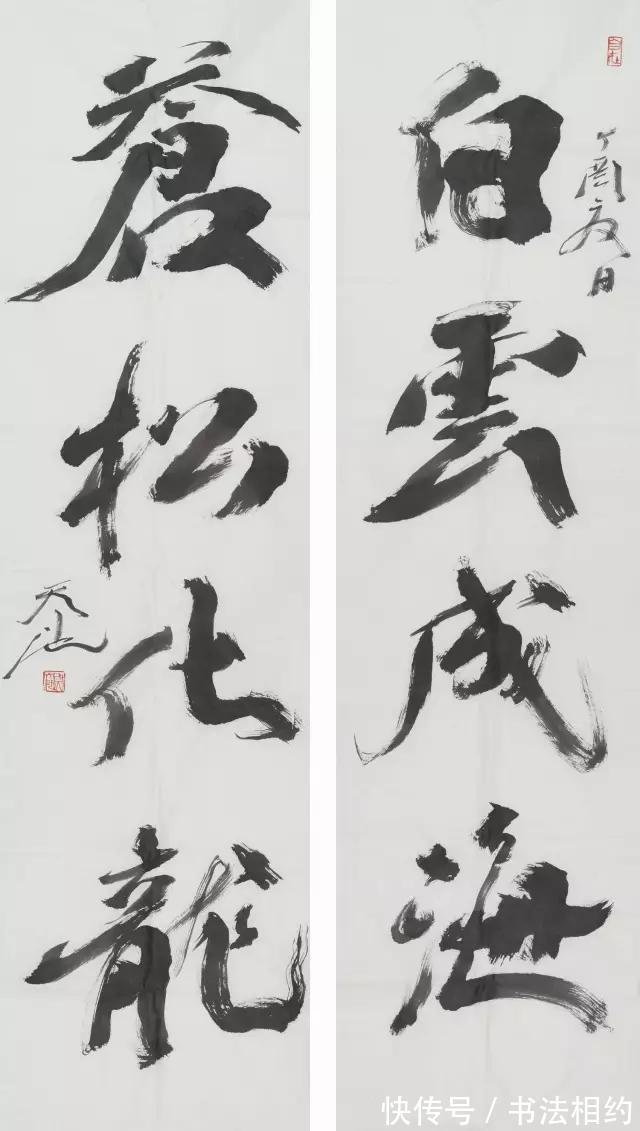 白雲成海
丁酉夏日
蒼松化龍
快传号 / 书法相约